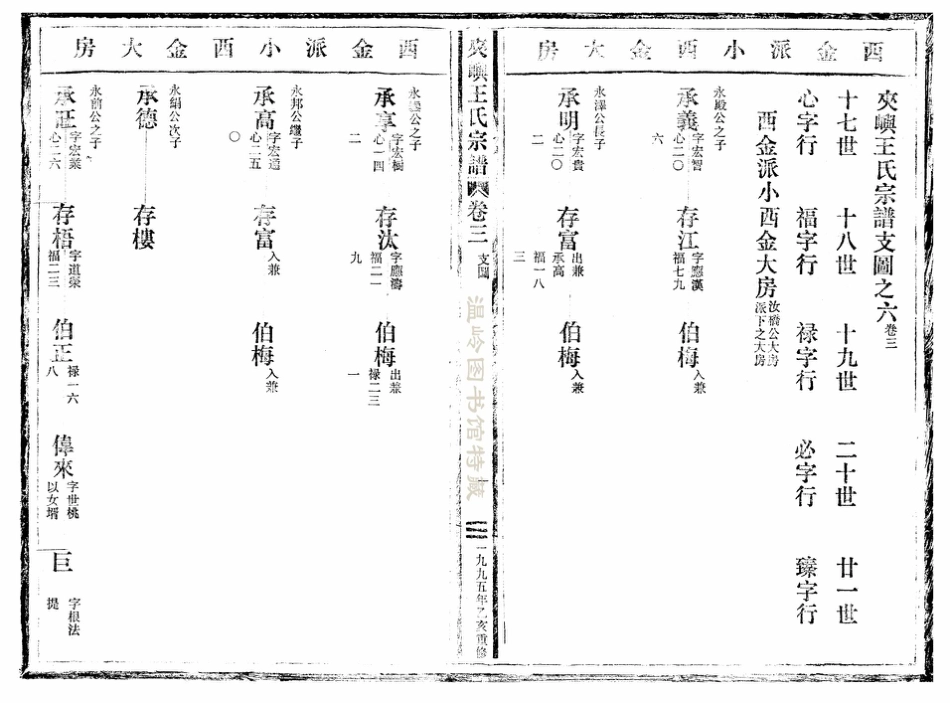 西金派小西金大房
夾嶼王氏宗譜支圖之六 卷三
十七世 十八世 十九世 二十世 廿一世
心字行 福字行 禄字行 必字行 臻字行
西金派小西金大房 汝 公大房派下之大房
永殿公之子
承義 字宏智 心二〇六
存江 字應漢 福七九
伯梅 入兼
永澤公長子
承明 字宏貴 心二〇二
存富 出兼承高 福一八三
伯梅 入兼
夾嶼王氏宗譜 卷三 支圖
温岭图书馆特藏
三
一九九五年乙亥重修
西金派小西金大房
永 公之子
承享 字宏樹 心一四二
存汰 字應濤 福二一九
伯梅 出兼 禄二三一
永邦公繼子
承高 字宏通 心二五〇
存富 入兼
伯梅 入兼
永緝公次子
承德
存樓
永前公之子
承正 字宏業 心二六
存梧 字道榮 福二三
伯正 禄一六八
偉來 字世桃 以女壻
巨 字根法 提